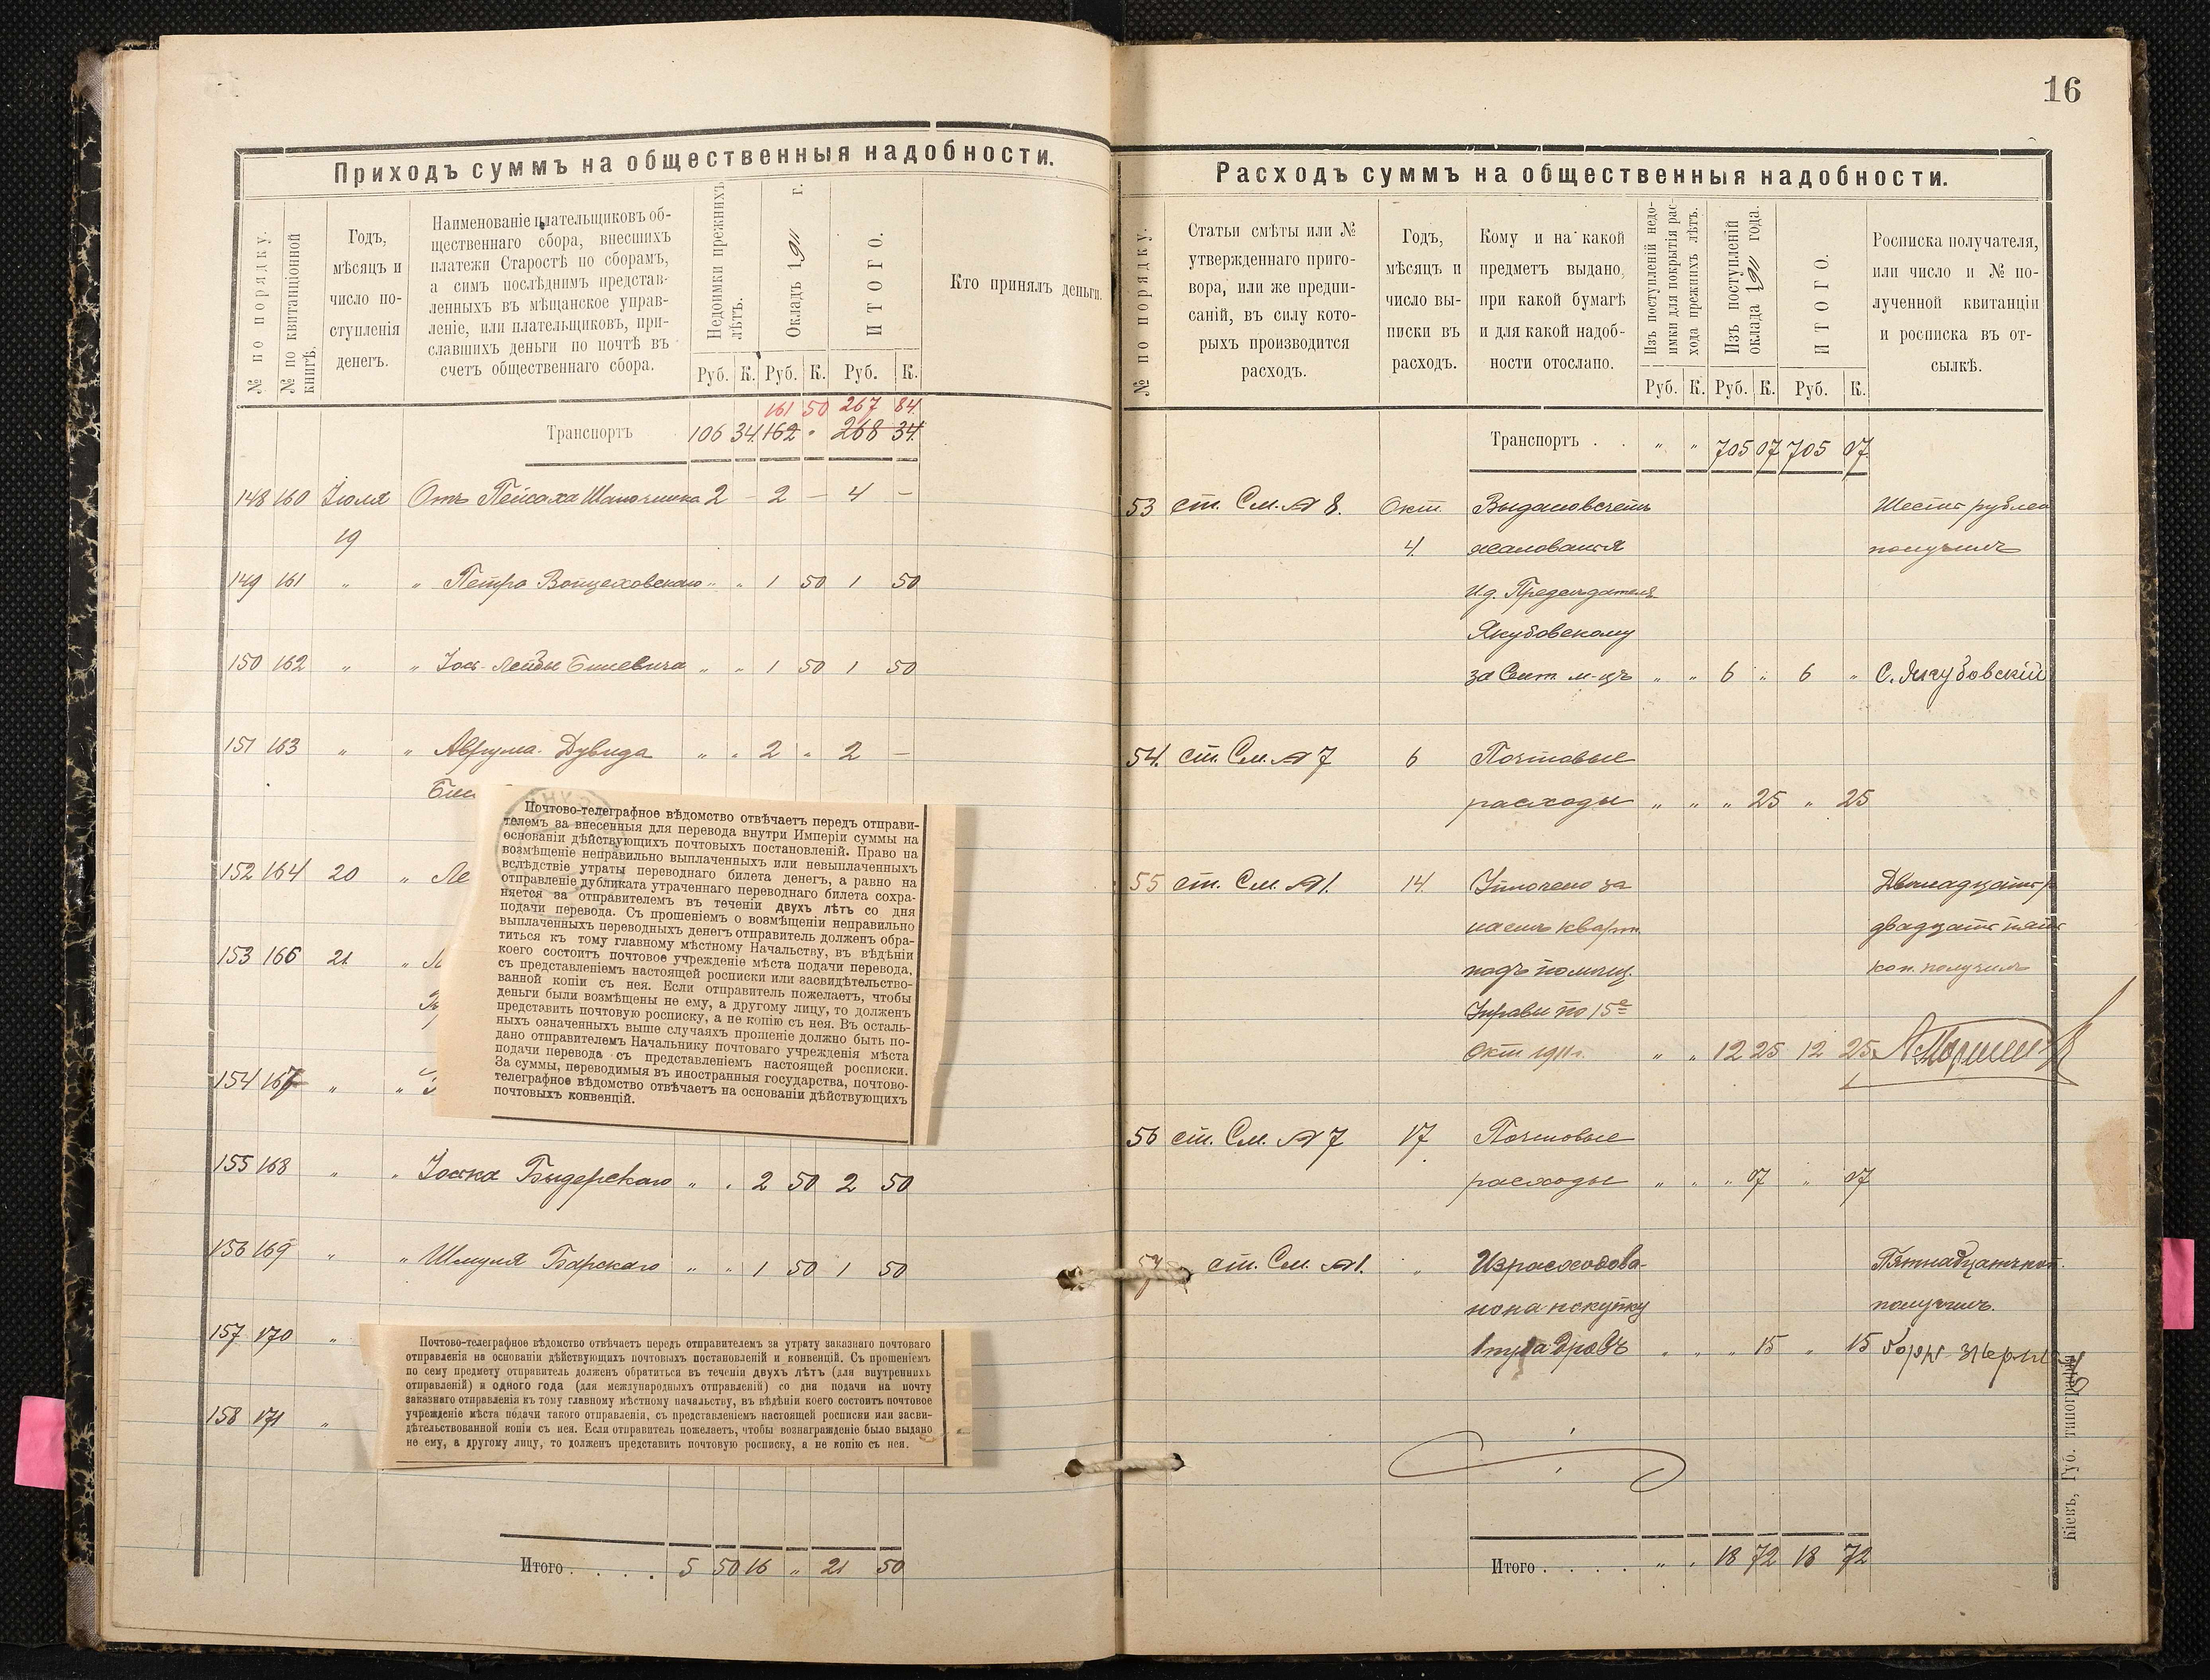 16
Приходъ суммъ на общественныя надобности.
№ по порядку.
№ по квитанціонной книгѣ.
Годъ,
мѣсяцъ и
число по-
ступленія
денегъ.
Наименованіе плательщиковъ об-
щественнаго сбора, внесшихъ
платежи Старостѣ по сборамъ,
а симъ послѣднимъ представ-
ленныхъ въ мѣщанское управ-
леніе, или плательщиковъ, при-
славшихъ деньги по почтѣ въ
счетъ общественнаго сбора.
Недоимки прежнихъ лѣтъ.
Окладъ 1911 г.
ИТОГО.
Кто принялъ деньги.
Руб. К. Руб. К. Руб. К.
161 50 267 84.
Транспортъ 106 34 162 " 268 34
148 160 Іюля Отъ Пейсаха Шапочника 2 – 2 – 4 –
19
149 161 " " Петра Войцеховскаго " " 1 50 1 50
150 162 " " Іос-Лейбы " " 1 50 1 50
151 163 " " Аврума-Дувида " " 2 " 2 –
152 164 20 " Ле
153 166 21 "
154 167 " "
155 168 " " Іоська Быдерскаго " " 2 50 2 50
156 169 " " Шмуля Барскаго " " 1 50 1 50
157 170 "
158 171 "
Итого . . . . 5 50 16 " 21 50
Почтово-телеграфное вѣдомство отвѣчаетъ передъ отправи-
телемъ за внесенныя для перевода внутри Имперіи суммы на
основаніи дѣйствующихъ почтовыхъ постановленій. Право на
возмѣщеніе неправильно выплаченныхъ или невыплаченныхъ
вслѣдствіе утраты переводнаго билета денегъ, а равно на
отправленіе дубликата утраченнаго переводнаго билета сохра-
няется за отправителемъ въ теченіи двухъ лѣтъ со дня
подачи перевода. Съ прошеніемъ о возмѣщеніи неправильно
выплаченныхъ переводныхъ денегъ отправитель долженъ обра-
титься къ тому главному мѣстному Начальству, въ вѣдѣніи
коего состоитъ почтовое учрежденіе мѣста подачи перевода,
съ представленіемъ настоящей росписки или засвидѣтельство-
ванной копіи съ нея. Если отправитель пожелаетъ, чтобы
деньги были возмѣщены не ему, а другому лицу, то долженъ
представить почтовую росписку, а не копію съ нея. Въ осталь-
ныхъ означенныхъ выше случаяхъ прошеніе должно быть по-
дано отправителемъ Начальнику почтоваго учрежденія мѣста
подачи перевода съ представленіемъ настоящей росписки.
За суммы, переводимыя въ иностранныя государства, почтово-
телеграфное вѣдомство отвѣчаетъ на основаніи дѣйствующихъ
почтовыхъ конвенцій.
Почтово-телеграфное вѣдомство отвѣчаетъ передъ отправителемъ за утрату заказнаго почтоваго
отправленія на основаніи дѣйствующихъ почтовыхъ постановленій и конвенцій. Съ прошеніемъ
по сему предмету отправитель долженъ обратиться въ теченіи двухъ лѣтъ (для внутреннихъ
отправленій) и одного года (для международныхъ отправленій) со дня подачи на почту
заказнаго отправленія къ тому главному мѣстному начальству, въ вѣдѣніи коего состоитъ почтовое
учрежденіе мѣста подачи такого отправленія, съ представленіемъ настоящей росписки или засви-
дѣтельствованной копіи съ нея. Если отправитель пожелаетъ, чтобы вознагражденіе было выдано
не ему, а другому лицу, то долженъ представить почтовую росписку, а не копію съ нея.
Расходъ суммъ на общественныя надобности.
№ по порядку.
Статьи смѣты или №
утвержденнаго приго-
вора, или же предпи-
саній, въ силу кото-
рыхъ производится
расходъ.
Годъ,
мѣсяцъ и
число вы-
писки въ
расходъ.
Кому и на какой
предметъ выдано,
при какой бумагѣ
и для какой надоб-
ности отослано.
Изъ поступленій недо-
имки для покрытія рас-
хода прежнихъ лѣтъ.
Изъ поступленій
оклада 1911 года.
ИТОГО.
Росписка получателя,
или число и № по-
лученной квитанціи
и росписка въ от-
сылкѣ.
Руб. К. Руб. К. Руб. К.
Транспортъ . . " " 705 07 705 07
53 ст. См. № 8. Окт. Выдано въ счетъ Шесть рублей
4. жалованья получилъ
И.д. Предсѣдателя
Якубовскому
за Сент. м-цъ " " 6 " 6 " С. Якубовскій
54. ст. См. № 7 6 Почтовые
расходы " " " 25 " 25
55 ст. См. № 1. 14. Уплочено за Двѣнадцать р.
наемъ кварт. двадцать пять
подъ помѣщ. коп. получилъ
Управы по 15е
Окт. 1911 г. " " 12 25 12 25
56 ст. См. № 7 17. Почтовые
расходы " " " 07 " 07
57 ст. См. № 1. " Израсходова- Пятнадцать коп.
но на покупку получилъ.
дровъ " " " 15 " 15
Итого . . . . " " 18 72 18 72
Кіевъ, Губ. типографія